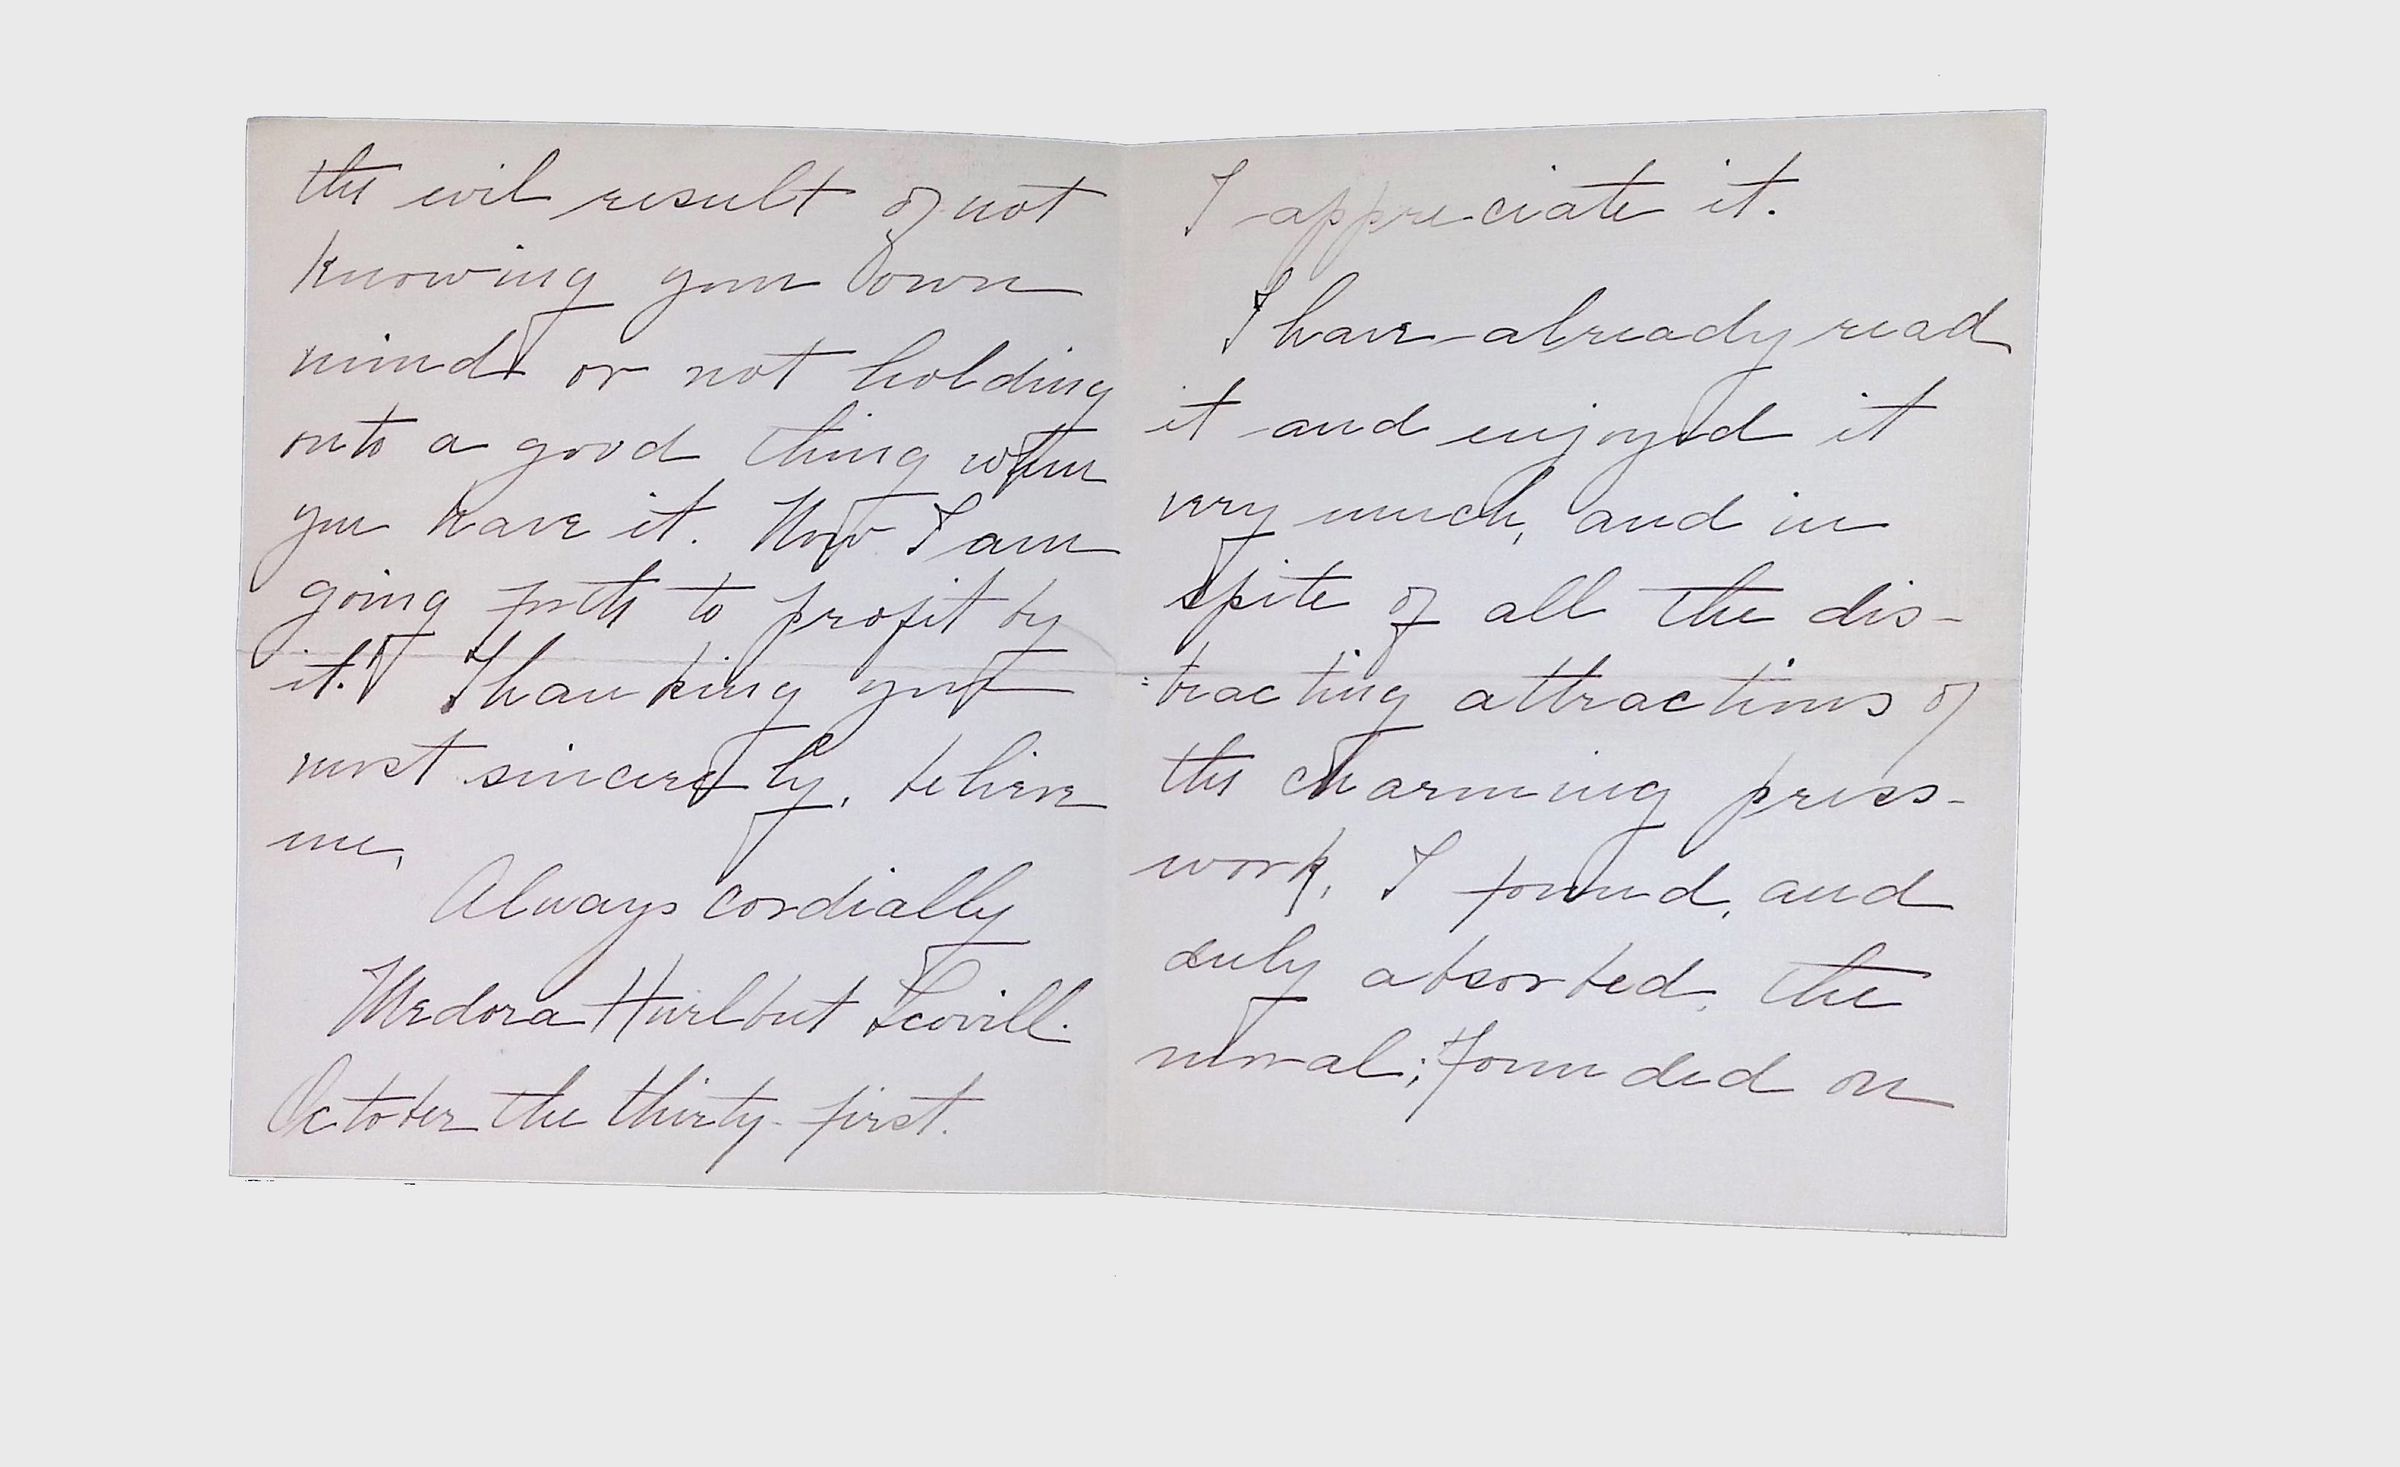 the evil result of not
knowing your own
mind or not holding
onto a good thing when
you have it. Now I am
going forth to profit by
it. Thanking you
most sincerely, believe
me,
Always cordially
Medora Hurlbut Scovill.
October the thirty-first.
I appreciate it.
I have already read
it and enjoyed it
very much, and in
spite of all the dis-
tracting attractions of
the charming press-
work, I found, and
duly absorbed, the
moral; founded on